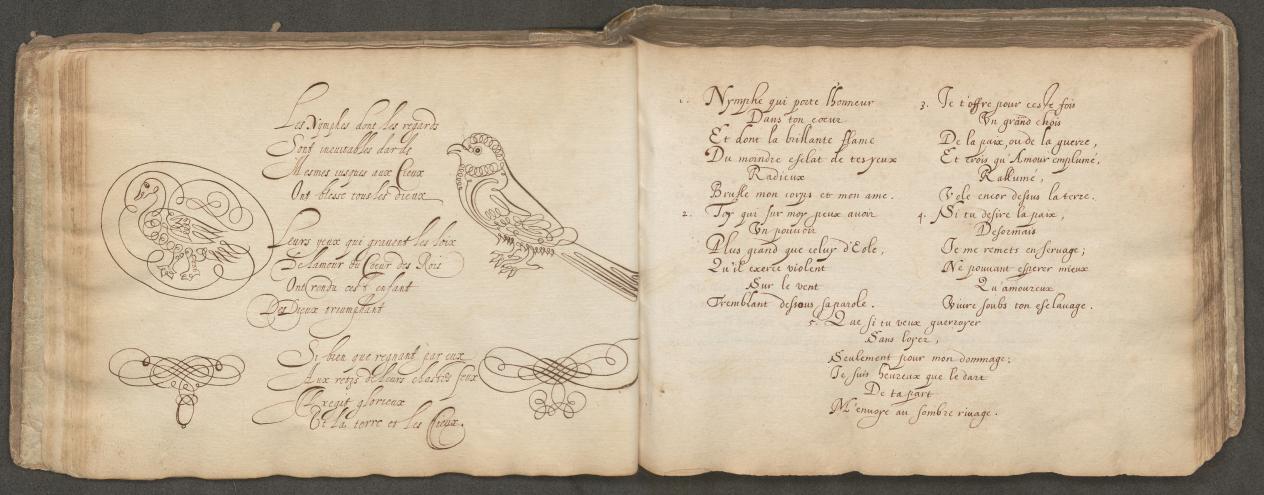 Les Nymphes dont les regards
Sont ineuitables dards
Mesmes iusques aux Cieux
Ont blessé tous les dieux
Leurs yeux qui grauent les loix
De lamour au Coeur des Rois
Ont rendu cest enfant
Des Dieux triumphant
Si bien que regnant par eux
Aux retzs de leurs chastes feux
Il regit glorieux
Et la terre et les Cieux.
1. Nymphe qui porte l'honneur
Dans ton coeur
Et dont la brillante flame
Du moindre esclat de tes yeux
Radieux
Brusle mon corps et mon ame.
2. Toy qui sur moy peux auoir
Un pouuoir
Plus grand que celuy d'Eole,
Qu'il exerce violent
Sur le vent
Tremblant dessous sa parole.
3. Je t'offre pour ceste fois
Un grand chois
De la paix, ou de la guerre,
Et crois qu'Amour emplumé,
Rallumé,
Vole encor dessus la terre.
4. Si tu desire la paix,
Desormais
Je me remets en seruage;
Ne pouuant esperer mieux
Qu'amoureux
Viure soubs ton esclauage.
5. Que si tu veux guerroyer
Sans loyer,
Seulement pour mon dommage;
Je suis heureux que le dart
De ta part
M'enuoye au sombre riuage.